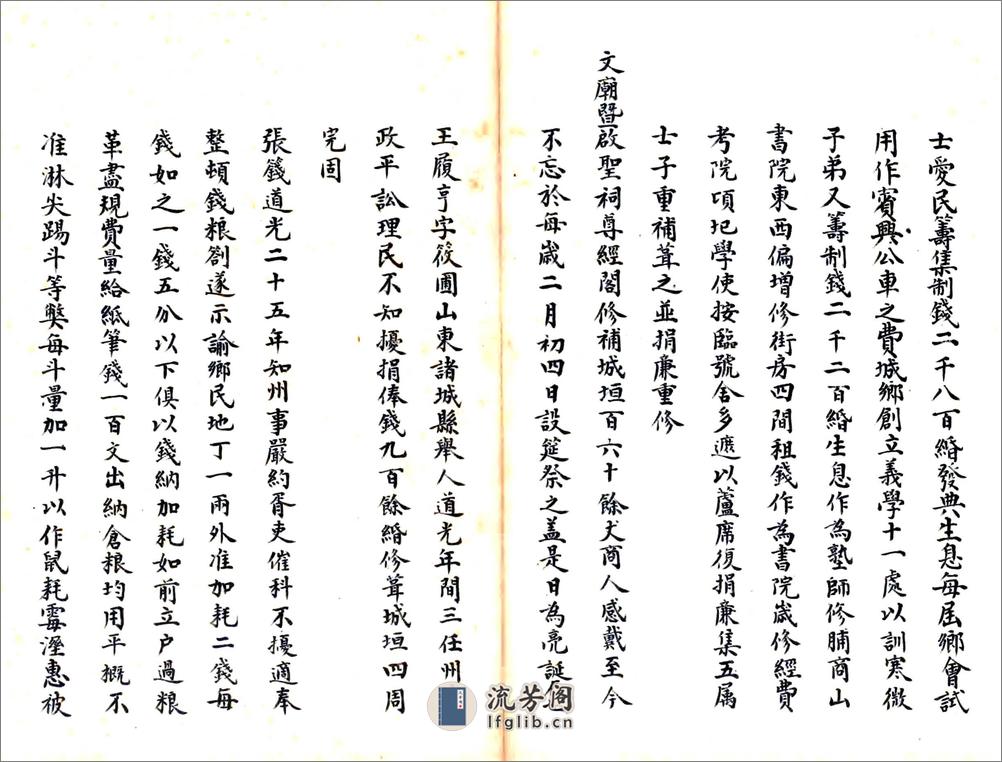 士愛民籌集制錢二千八百緡發典生息每屆鄉會試
用作賓興公車之費城鄉創立義學十一處以訓寒微
子弟又籌制錢二千二百緡生息作為塾師修脯商山
書院東西偏增修街房四間租錢作為書院歲修經費
考院頃圮學使按臨號舍多遮以蘆席復捐廉集五属
士子重補葺之並捐廉重修
文廟暨啟聖祠尊經閣修補城垣百六十餘丈商人感戴至今
不忘於每歲二月初四日設筵祭之盖是日為亮誕辰也
王履亨字筱圃山東諸城縣舉人道光年間三任州
政平訟理民不知擾捐俸錢九百餘緡修葺城垣四周
完固
張籛道光二十五年知州事嚴約胥吏催科不擾適奉
整頓錢粮劄遂示諭鄉民地丁一兩外准加耗二錢每
錢如之一錢五分以下俱以錢納加耗如前立戶過粮
革盡規費量給紙筆錢一百文出納倉粮均用平概不
准淋尖踢斗等獘每斗量加一升以作鼠耗霉溼惠被
流芳阁
lfglib.cn